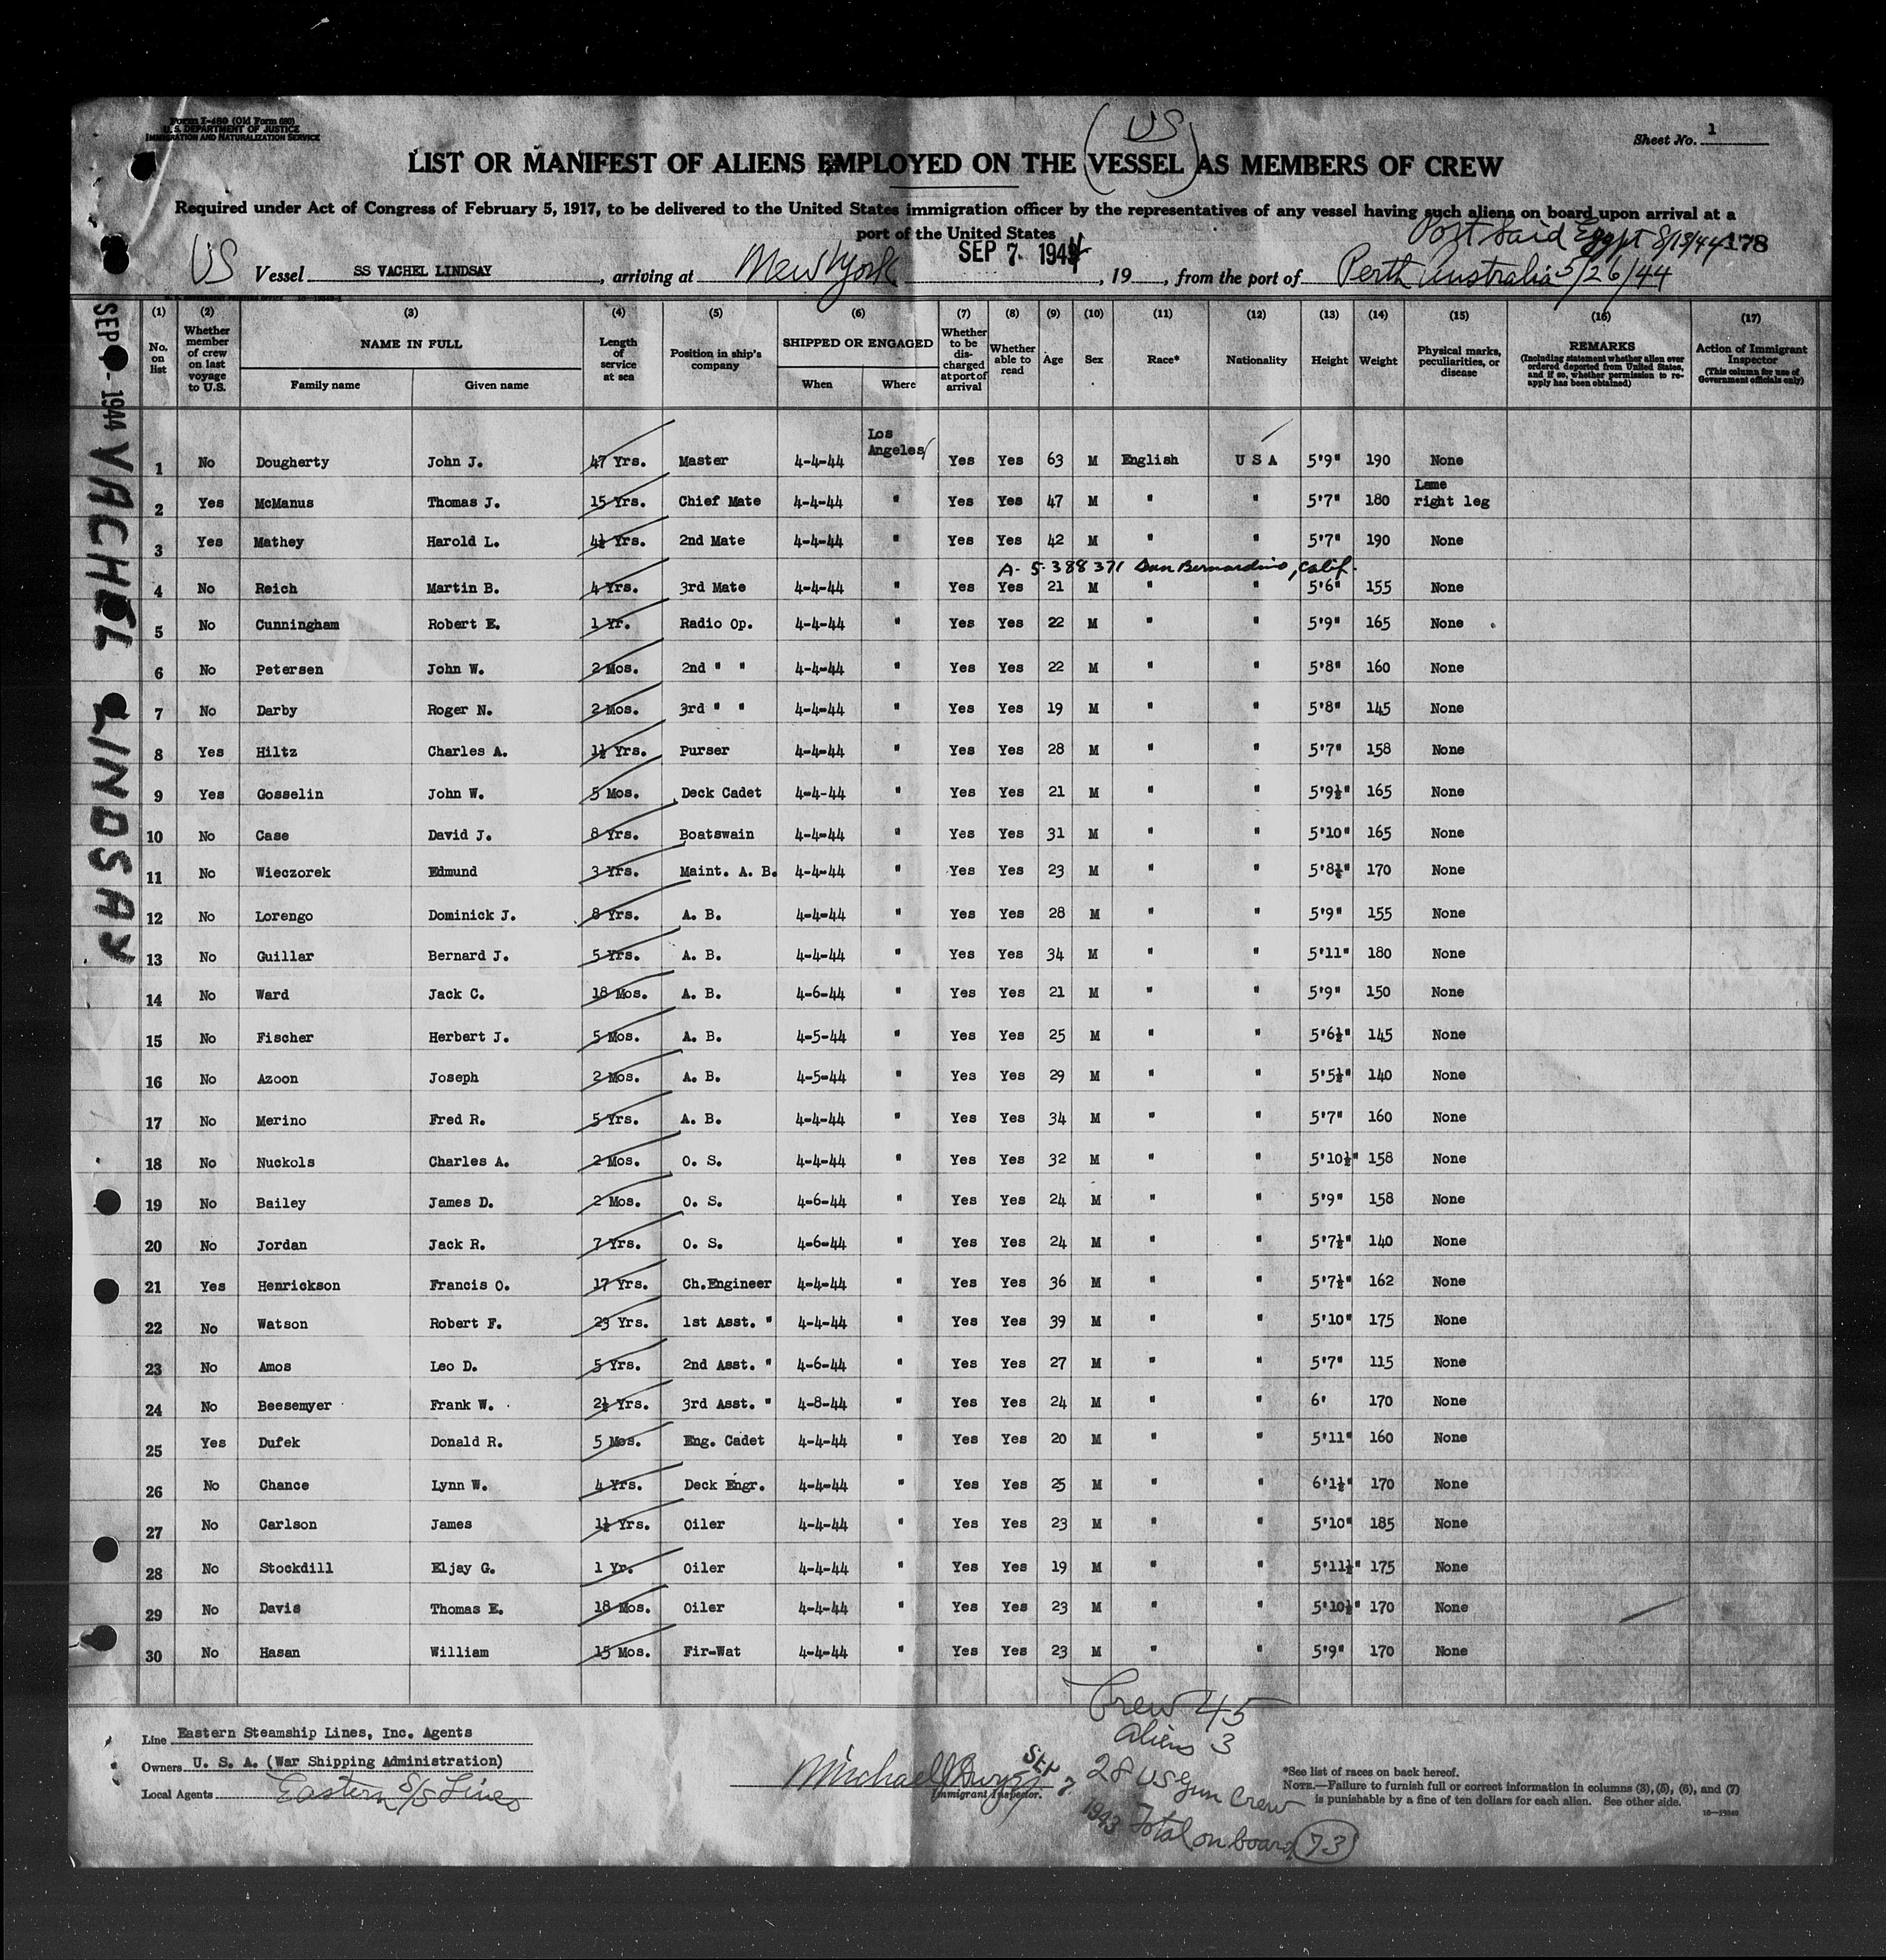 Form I-480 (Old Form 680)
U. S. DEPARTMENT OF JUSTICE
IMMIGRATION AND NATURALIZATION SERVICE
Sheet No. 1
(US)
LIST OR MANIFEST OF ALIENS EMPLOYED ON THE VESSEL AS MEMBERS OF CREW
Required under Act of Congress of February 5, 1917, to be delivered to the United States immigration officer by the representatives of any vessel having such aliens on board upon arrival at a
port of the United States
Port Said Egypt 8/13/44 178
US Vessel SS VACHEL LINDSAY, arriving at New York SEP 7 1944, 19, from the port of Perth Australia 5/26/44
SEP - 1944 VACHEL LINDSAY
(1) (2) (3) (4) (5) (6) (7) (8) (9) (10) (11) (12) (13) (14) (15) (16) (17)
No. on list
Whether member of crew on last voyage to U.S.
NAME IN FULL
Family name Given name
Length of service at sea
Position in ship's company
SHIPPED OR ENGAGED
When Where
Whether to be discharged at port of arrival
Whether able to read
Age
Sex
Race*
Nationality
Height
Weight
Physical marks, peculiarities, or disease
REMARKS
(Including statement whether alien ever ordered deported from United States, and if so, whether permission to reapply has been obtained)
Action of Immigrant Inspector
(This column for use of Government officials only)
1 No Dougherty John J. 47 Yrs. Master 4-4-44 Los Angeles Yes Yes 63 M English U S A 5'9" 190 None
2 Yes McManus Thomas J. 15 Yrs. Chief Mate 4-4-44 " Yes Yes 47 M " " 5'7" 180 Lame right leg
3 Yes Mathey Harold L. 4½ Yrs. 2nd Mate 4-4-44 " Yes Yes 42 M " " 5'7" 190 None
A- 5 388 371 San Bernardino, Calif.
4 No Reich Martin B. 4 Yrs. 3rd Mate 4-4-44 " Yes Yes 21 M " " 5'6" 155 None
5 No Cunningham Robert E. 1 Yr. Radio Op. 4-4-44 " Yes Yes 22 M " " 5'9" 165 None
6 No Petersen John W. 2 Mos. 2nd " " 4-4-44 " Yes Yes 22 M " " 5'8" 160 None
7 No Darby Roger N. 2 Mos. 3rd " " 4-4-44 " Yes Yes 19 M " " 5'8" 145 None
8 Yes Hiltz Charles A. 1½ Yrs. Purser 4-4-44 " Yes Yes 28 M " " 5'7" 158 None
9 Yes Gosselin John W. 5 Mos. Deck Cadet 4-4-44 " Yes Yes 21 M " " 5'9½" 165 None
10 No Case David J. 8 Yrs. Boatswain 4-4-44 " Yes Yes 31 M " " 5'10" 165 None
11 No Wieczorek Edmund 3 Yrs. Maint. A. B. 4-4-44 " Yes Yes 23 M " " 5'8½" 170 None
12 No Lorengo Dominick J. 8 Yrs. A. B. 4-4-44 " Yes Yes 28 M " " 5'9" 155 None
13 No Guillar Bernard J. 5 Yrs. A. B. 4-4-44 " Yes Yes 34 M " " 5'11" 180 None
14 No Ward Jack C. 18 Mos. A. B. 4-6-44 " Yes Yes 21 M " " 5'9" 150 None
15 No Fischer Herbert J. 5 Mos. A. B. 4-5-44 " Yes Yes 25 M " " 5'6½" 145 None
16 No Azoon Joseph 2 Mos. A. B. 4-5-44 " Yes Yes 29 M " " 5'5½" 140 None
17 No Merino Fred R. 5 Yrs. A. B. 4-4-44 " Yes Yes 34 M " " 5'7" 160 None
18 No Nuckols Charles A. 2 Mos. O. S. 4-4-44 " Yes Yes 32 M " " 5'10½" 158 None
19 No Bailey James D. 2 Mos. O. S. 4-6-44 " Yes Yes 24 M " " 5'9" 158 None
20 No Jordan Jack R. 7 Yrs. O. S. 4-6-44 " Yes Yes 24 M " " 5'7½" 140 None
21 Yes Henrickson Francis O. 17 Yrs. Ch.Engineer 4-4-44 " Yes Yes 36 M " " 5'7½" 162 None
22 No Watson Robert F. 23 Yrs. 1st Asst. " 4-4-44 " Yes Yes 39 M " " 5'10" 175 None
23 No Amos Leo D. 5 Yrs. 2nd Asst. " 4-6-44 " Yes Yes 27 M " " 5'7" 115 None
24 No Beesemyer Frank W. 2½ Yrs. 3rd Asst. " 4-8-44 " Yes Yes 24 M " " 6' 170 None
25 Yes Dufek Donald R. 5 Mos. Eng. Cadet 4-4-44 " Yes Yes 20 M " " 5'11" 160 None
26 No Chance Lynn W. 4 Yrs. Deck Engr. 4-4-44 " Yes Yes 25 M " " 6'1½" 170 None
27 No Carlson James 1½ Yrs. Oiler 4-4-44 " Yes Yes 23 M " " 5'10" 185 None
28 No Stockdill Eljay G. 1 Yr. Oiler 4-4-44 " Yes Yes 19 M " " 5'11½" 175 None
29 No Davis Thomas E. 18 Mos. Oiler 4-4-44 " Yes Yes 23 M " " 5'10½" 170 None
30 No Hasan William 15 Mos. Fir-Wat 4-4-44 " Yes Yes 23 M " " 5'9" 170 None
Crew 45
Aliens 3
28 US Gun Crew
Total on board 73
Line Eastern Steamship Lines, Inc. Agents
Owners U. S. A. (War Shipping Administration)
Local Agents Eastern S/S Lines
Michael
Immigrant Inspector.
SEP 7 1943
*See list of races on back hereof.
NOTE.—Failure to furnish full or correct information in columns (3), (5), (6), and (7)
is punishable by a fine of ten dollars for each alien. See other side.